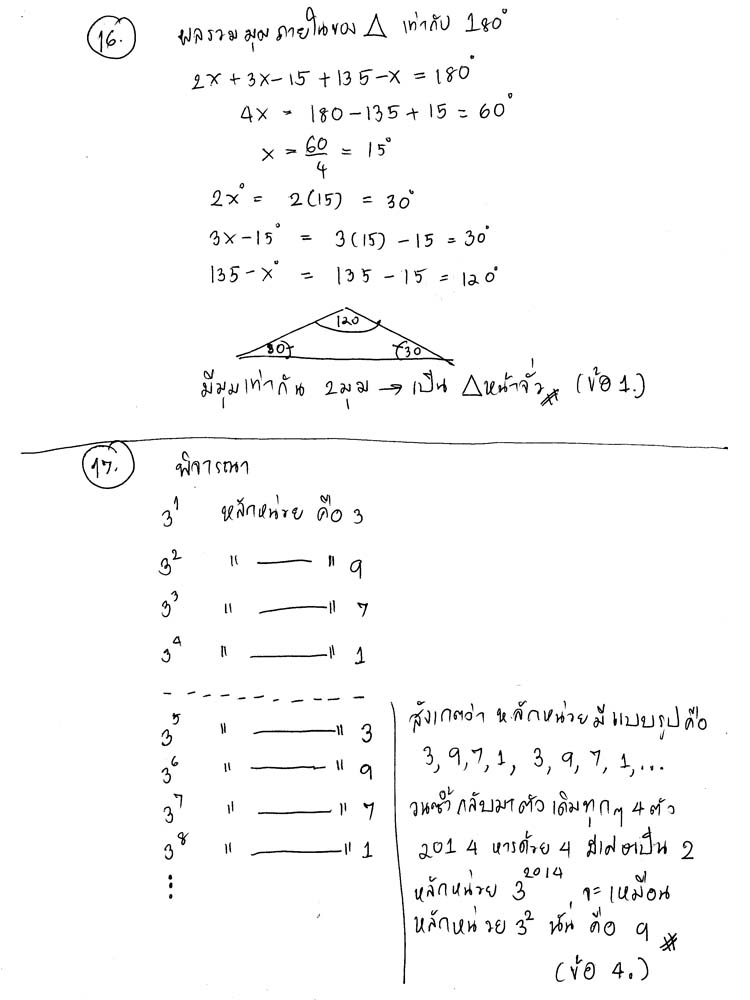 16. ผลรวมมุมภายในของ △ เท่ากับ 180°
2x + 3x - 15 + 135 - x = 180°
4x = 180 - 135 + 15 = 60°
x = 60/4 = 15°
2x° = 2(15) = 30°
3x - 15° = 3(15) - 15 = 30°
135 - x° = 135 - 15 = 120°
120
30
30
มีมุมเท่ากัน 2 มุม → เป็น △หน้าจั่ว (ข้อ 1.)
17. พิจารณา
3¹ หลักหน่วย คือ 3
3² " —— " 9
3³ " —— " 7
3⁴ " —— " 1
3⁵ " —— " 3
3⁶ " —— " 9
3⁷ " —— " 7
3⁸ " —— " 1
⋮
สังเกตว่า หลักหน่วยมีแบบรูปคือ
3, 9, 7, 1, 3, 9, 7, 1, ...
วนซ้ำกลับมาตัวเดิมทุกๆ 4 ตัว
2014 หารด้วย 4 มีเศษเป็น 2
หลักหน่วย 3²⁰¹⁴ จะเหมือน
หลักหน่วย 3² นั่น คือ 9
(ข้อ 4.)